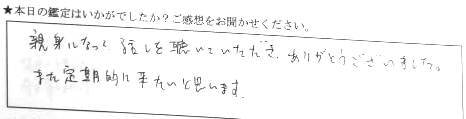 ★本日の鑑定はいかがでしたか？ご感想をお聞かせください。
親身になって話しを聴いていただき、ありがとうございました。
また定期的に来たいと思います。